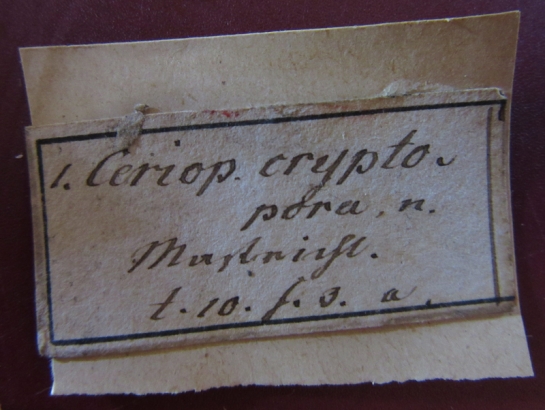 1. Ceriop. crypto.
pora. n.
Mastricht.
t. 10. f. 3. a.